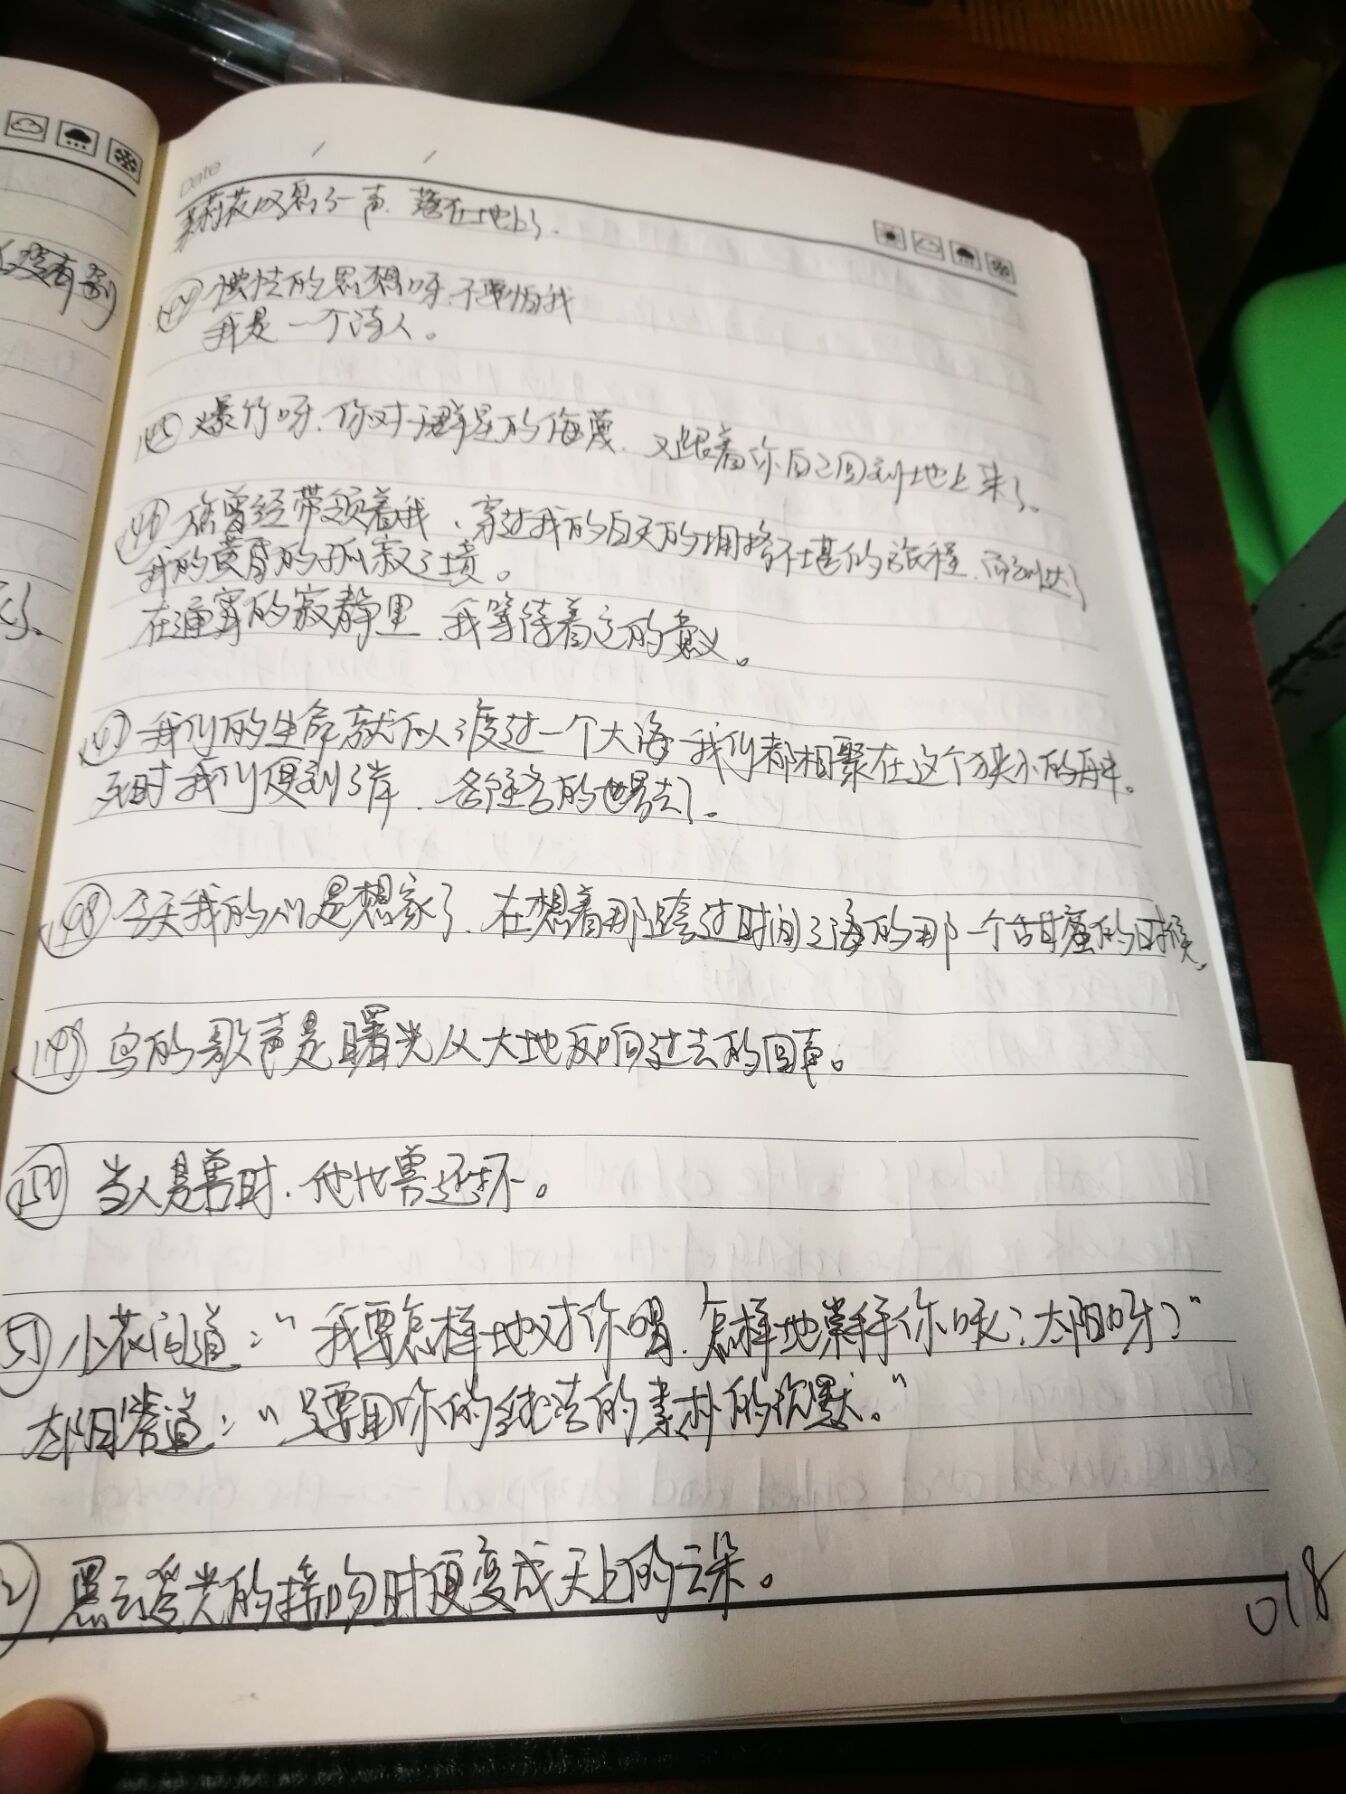 Date
茉莉花叹息了一声，落在地上了。
我是一个诗人。
145 爆竹呀，你对于群星的侮蔑，又跟着你自己回到地上来了。
146 您曾经带领着我，穿过我的白天的拥挤不堪的旅程，而到达了
我的黄昏的孤寂之境。
在通宵的寂静里，我等待着它的意义。
147 我们的生命就似渡过一个大海，我们都相聚在这个狭小的舟中。
死时我们便到了岸，各往各的世界去了。
148 今天我的心是想家了，在想着那跨过时间之海的那一个甜蜜的时候。
149 鸟的歌声是曙光从大地反响过去的回声。
150 当人是兽时，他比兽还坏。
51 小花问道：“我要怎样地对你唱，怎样地崇拜你呢？太阳呀？”
太阳答道：“只要用你的纯洁的素朴的沉默。”
黑云受光的接吻时便变成天上的云朵。
018